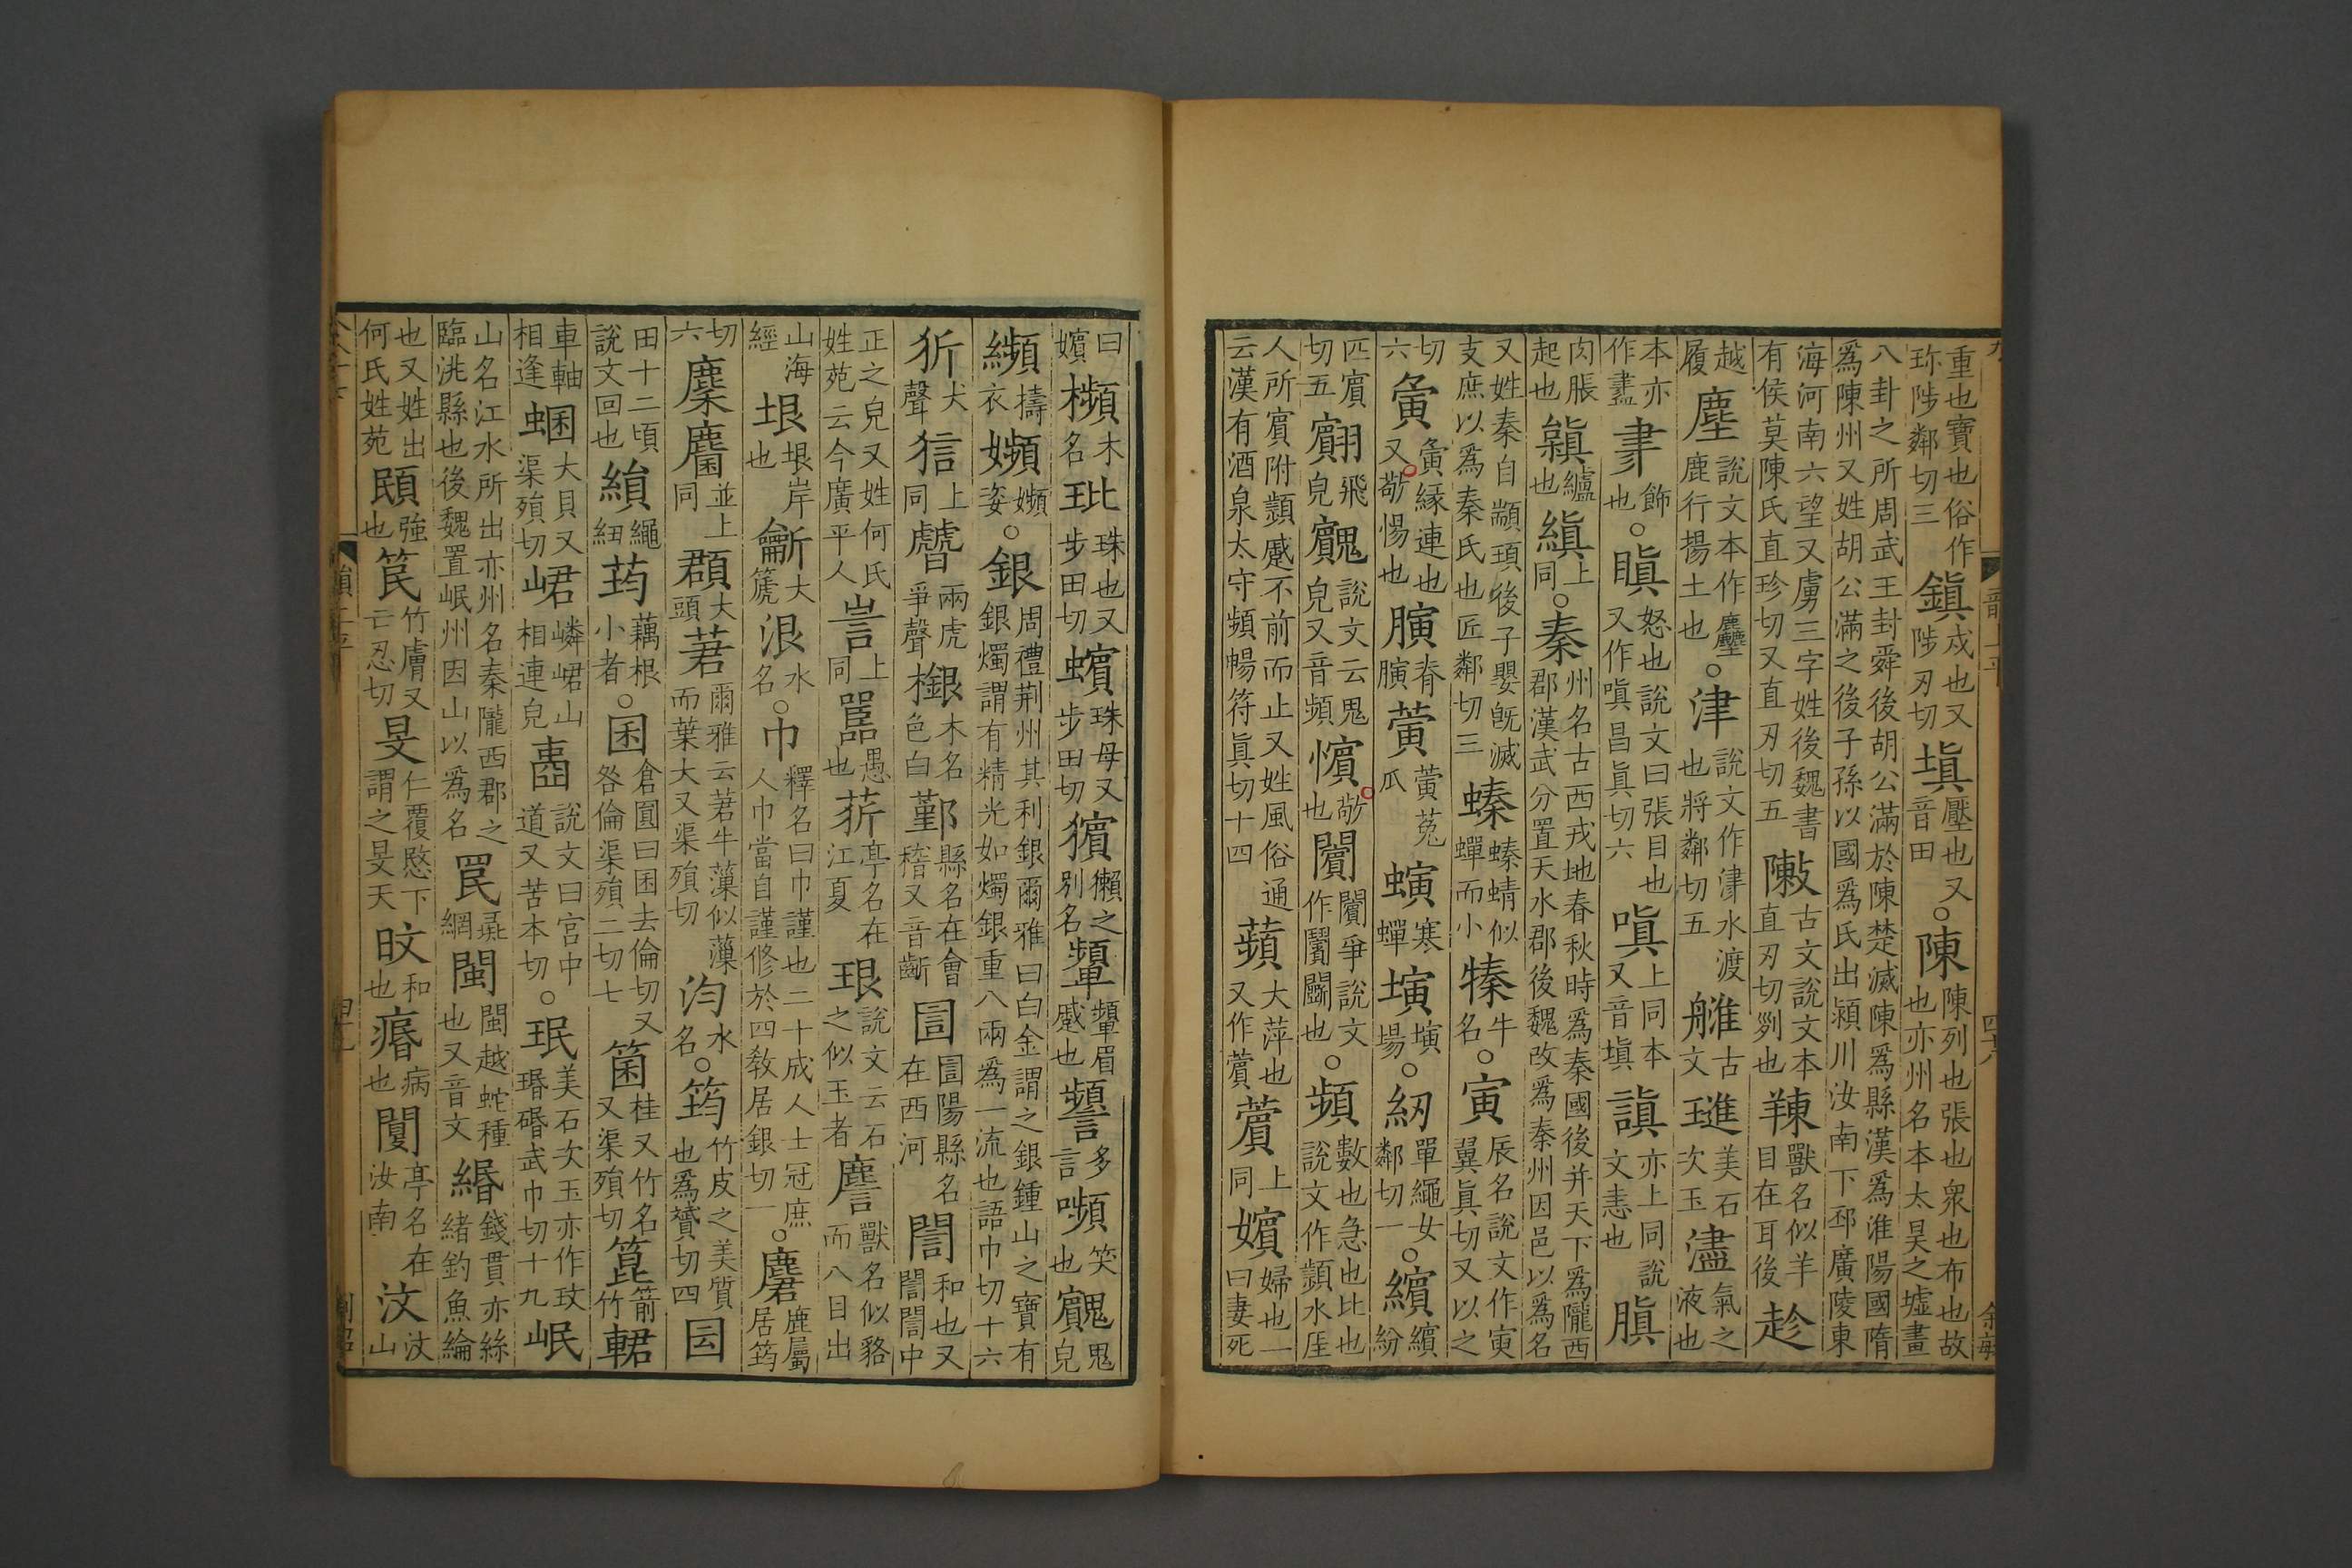 重也寶也俗作珎陟鄰切三鎭戍也又陟刃切塡壓也又音田○陳陳列也張也衆也布也故也亦州名本太昊之墟畫
八卦之所周武王封舜後胡公滿於陳楚滅陳爲縣漢爲淮陽國隋爲陳州又姓胡公滿之後子孫以國爲氏出潁川汝南下邳廣陵東
海河南六望又虜三字姓後魏書有侯莫陳氏直珍切又直刃切五敶古文說文本直刃切列也䍶獸名似羊目在耳後趁
越履塵說文本作𪋻鹿行揚土也○津說文作𣸁水渡也將鄰切五艁古文璡美石次玉濜氣之液也
本亦作盡𦘔飾也○瞋怒也說文曰張目也又作嗔昌眞切六嗔上同本又音塡謓亦上同說文恚也䐜
肉脹起也䡩纑也縝上同○秦州名古西戎地春秋時爲秦國後并天下爲隴西郡漢武分置天水郡後魏改爲秦州因邑以爲名
又姓秦自顓頊後子嬰旣滅支庶以爲秦氏也匠鄰切三螓螓蜻似蟬而小㮣牛名○寅辰名說文作寅翼眞切又以之
切六夤夤緣連也又敬惕也䐙脊䐙𦺋𦺋菟瓜螾寒蟬㙬㙬塲○紉單繩女鄰切一○繽繽紛
匹賔切五翸飛皃䚔說文云鬼皃又音頻㦦敬也闠闠爭說文作鬪也○頻數也急也比也說文作顰水厓
人所賔附顰戚不前而止又姓風俗通云漢有酒泉太守頻暢符眞切十四蘋大萍也又作薲薲上同嬪婦也一曰妻死
曰嬪櫇木名玭珠也又步田切蠙珠母又步田切獱獺之別名顰顰眉蹙也𧭹多言嚬笑也䚔鬼皃
𦇖擣衣㜞㜞姿○銀周禮荆州其利銀爾雅曰白金謂之銀鍾山之寶有銀燭謂有精光如燭銀重八兩爲一流也語巾切十六
犾犬聲狺上同虤兩虎爭聲檭木名色白鄞縣名在會稽又音齗圁圁陽縣名在西河誾和也又誾誾中
正之皃又姓何氏姓苑云今廣平人訔上同嚚愚也𦭲亭名在江夏珢說文云石之似玉者𪊴獸名似貉而八目出
山海經垠垠岸也䶳大箎泿水名○巾釋名曰巾謹也二十成人士冠庶人巾當自謹修於四敎居銀切一○麏鹿屬居筠
切六麇麕並上同頵大頭莙爾雅云莙牛薻似薻而葉大又渠殞切汮水名○筠竹皮之美質也爲贇切四囩
田十二頃說文回也縜繩紐荺藕根小者○囷倉圓曰囷去倫切又咎倫渠殞二切七箘桂又竹名又渠殞切箟箭竹輑
車軸相逢蜠大貝又渠殞切峮嶙峮山相連皃壼說文曰宮中道又苦本切○珉美石次玉亦作玟瑉碈武巾切十九岷
山名江水所出亦州名秦隴西郡之臨洮縣也後魏置岷州因山以爲名罠彘網閩閩越蛇種也又音文緡錢貫亦絲緒釣魚綸
也又姓出何氏姓苑䪸強也笢竹膚又亡忍切旻仁覆愍下謂之旻天旼和也痻病也閺亭名在汝南汶汶山